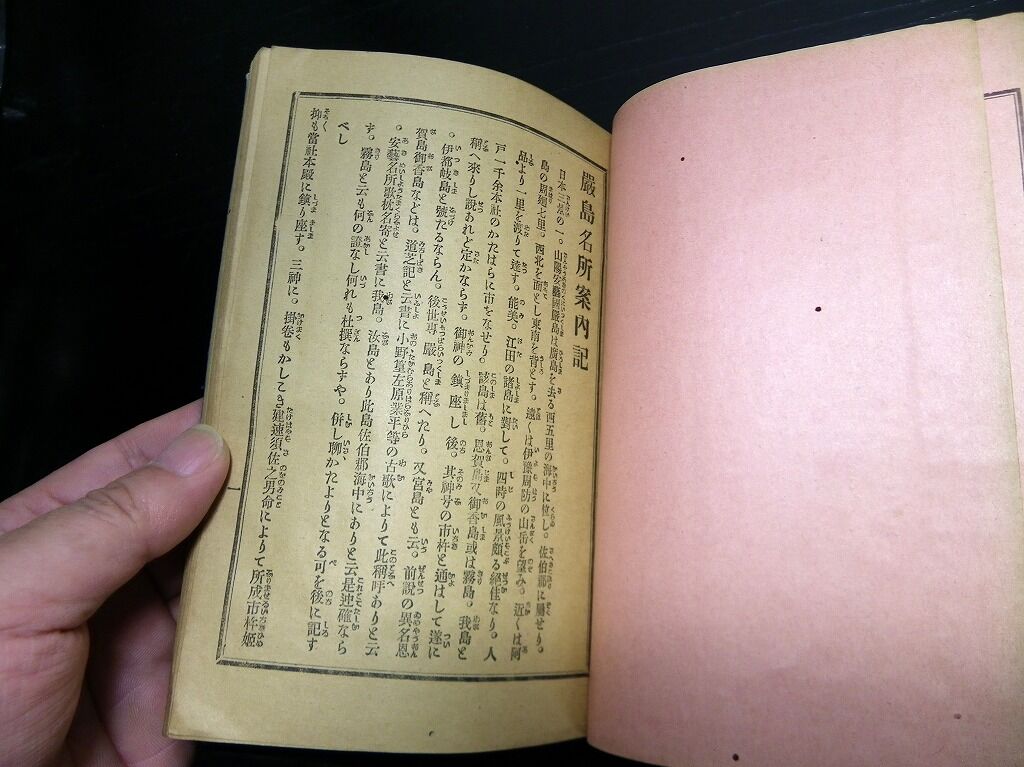 嚴島名所案內記
日本三景の一。山陽安藝國嚴島は廣島を去る西五里の海中に位し。佐伯郡に屬せり。
島の周廻七里。西北を面とし東南を背とす。遠くは伊豫周防の山岳を望み。近くは阿
品より一里を渡りて達す。能美。江田の諸島に對して。四時の風景頗る絕佳なり。人
戸一千余本社のかたはらに市をなせり。該島は舊。恩賀島又御香島或は霧島。我島と
稱へ來りし說あれど定かならす。御神の鎮座し後。其神号の市杵と通はして遂に
。伊都岐島と號たるならん。後世専嚴島と稱へたり。又宮島とも云。前說の異名恩
賀島御香島などは。道芝記と云書に小野篁左原業平等の古歌によりて此稱呼ありと云
。安藝名所歌枕名寄と云書に我島。汝島とあり此島佐伯郡海中にありと云是連確なら
す。霧島と云も何の證なし何れも杜撰ならすや。併し聊かたよりとなる可を後に記す
べし
抑も當社本殿に鎮り座す。三神に。掛卷もかしこき建速須佐之男命によりて所成市杵姬